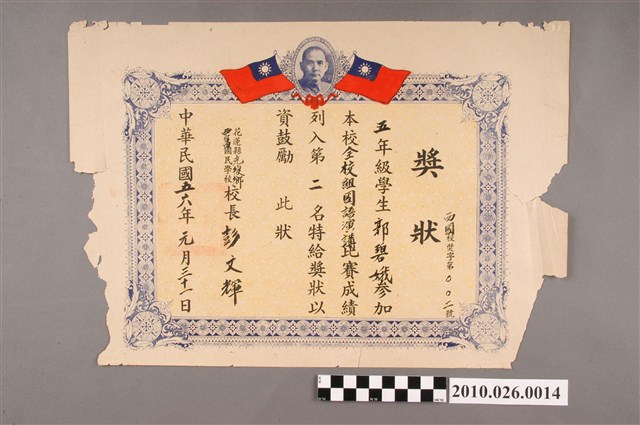 獎狀
西國校獎字第〇〇二號
五年級學生郭碧娥參加
本校全校組國語演講比賽成績
列入第二名特給獎狀以
資鼓勵 此狀
花蓮縣光復鄉
國民學校
校長彭文輝
中華民國五六年元月三十一日
2010.026.0014